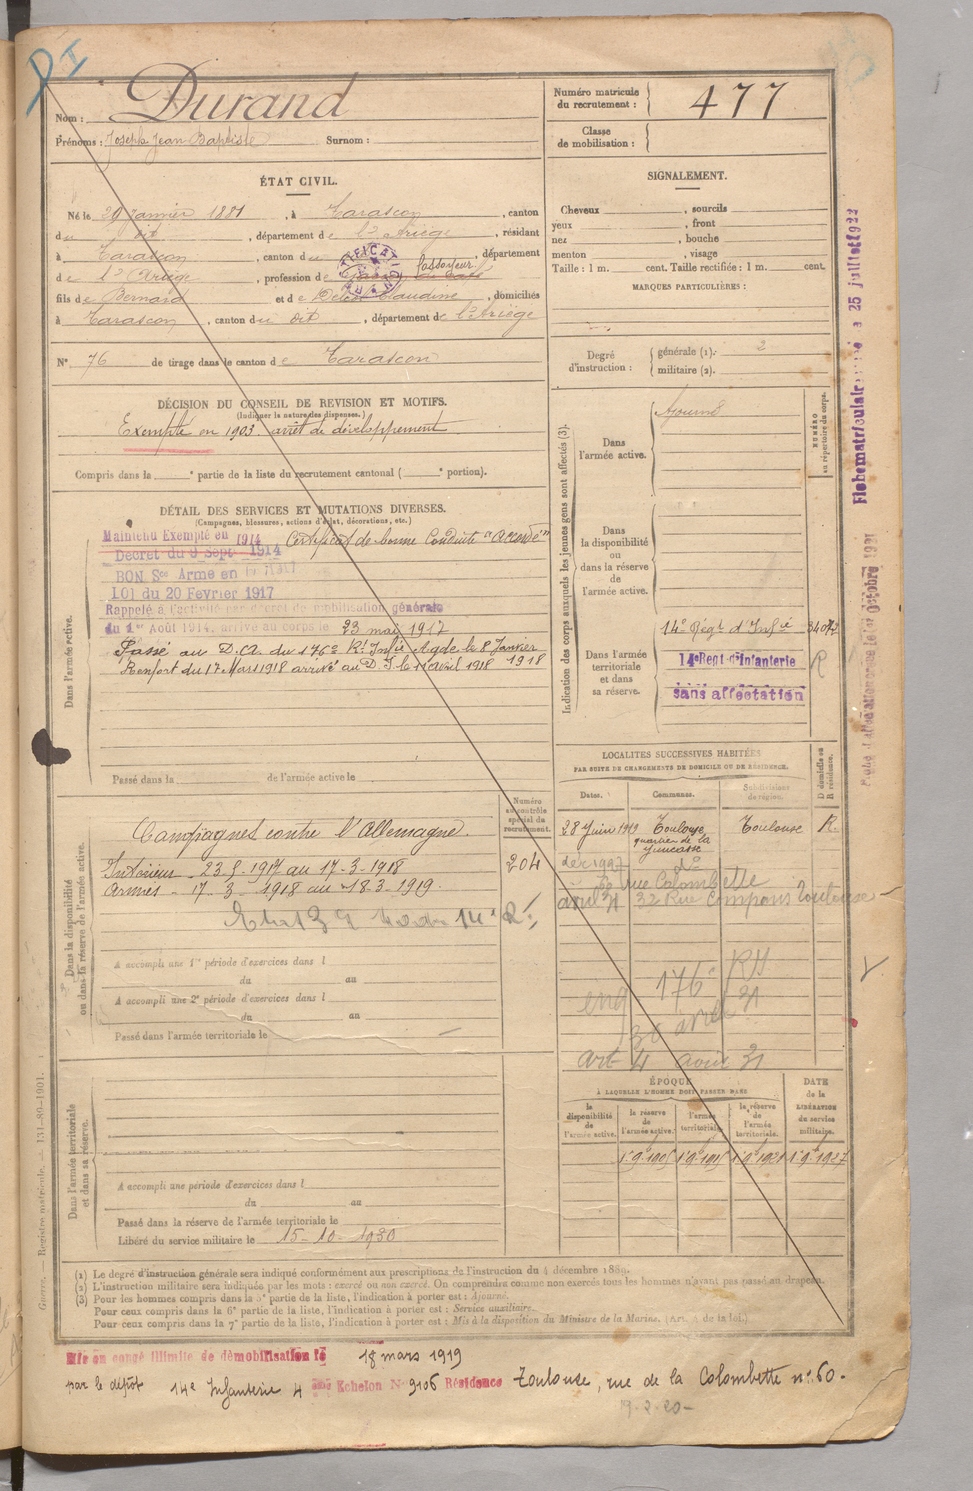 Nom : Durand
Prénoms : Joseph Jean Baptiste Surnom :
Numéro matricule du recrutement : 477
Classe de mobilisation :
ÉTAT CIVIL.
Né le 29 Janvier 1881, à Tarascon, canton
du dit, département de l'Ariège, résidant
à Tarascon, canton du dit, département
de l'Ariège, profession de
fils de Bernard et de Claudine, domiciliés
à Tarascon, canton du dit, département de l'Ariège
N° 76 de tirage dans le canton de Tarascon
DÉCISION DU CONSEIL DE REVISION ET MOTIFS.
(Indiquer la nature des dispenses.)
Exempté en 1903. arrêt de développement
Compris dans la ° partie de la liste du recrutement cantonal ( ° portion).
SIGNALEMENT.
Cheveux , sourcils
yeux , front
nez , bouche
menton , visage
Taille : 1 m. cent. Taille rectifiée : 1 m. cent.
MARQUES PARTICULIÈRES :
Degré d'instruction : générale (1). 2
militaire (2).
Indication des corps auxquels les jeunes gens sont affectés (3).
NUMÉRO au répertoire du corps.
Dans l'armée active. Ajourné
Dans la disponibilité ou dans la réserve de l'armée active.
Dans l'armée territoriale et dans sa réserve.
14e Régt d'Infie
14e Regt d'Infanterie R
sans affectation
DÉTAIL DES SERVICES ET MUTATIONS DIVERSES.
(Campagnes, blessures, actions d'éclat, décorations, etc.)
Dans l'armée active.
Maintenu Exempté en 1914. Certificat de bonne Conduite "Accordé"
Décret du 9 Sept 1914
BON Sce Armé en
LOI du 20 Février 1917
Rappelé à l'activité par décret de mobilisation générale
du 1er Août 1914, arrivé au corps le 23 mai 1917
Passé au D.A. du 176e Rt Infie Agde le 8 Janvier 1918
Renfort du 17 Mars 1918 arrivé au D.I. le avril 1918
Passé dans la de l'armée active le
Numéro au contrôle spécial du recrutement.
204
Dans la disponibilité ou dans la réserve de l'armée active.
Campagnes contre l'Allemagne.
Intérieur - 23.5.1917 au 17-3-1918
Armés - 17.3 1918 au 18.3-1919.
A accompli une 1re période d'exercices dans l
du au
A accompli une 2e période d'exercices dans l
du au
Passé dans l'armée territoriale le
LOCALITES SUCCESSIVES HABITÉES
PAR SUITE DE CHANGEMENTS DE DOMICILE OU DE RÉSIDENCE.
Dates. Communes. Subdivisions de région. D domicile ou R résidence.
28 Juin 1919 Toulouse, quartier de la Toulouse R.
d°
rue Colombette
avril 31 32 Rue Compans Toulouse
176e RH
30 avril 31
art 4 aout 31
ÉPOQUE
À LAQUELLE L'HOMME DOIT PASSER DANS
la disponibilité de l'armée active. la réserve de l'armée active. l'armée territoriale. la réserve de l'armée territoriale. DATE de la LIBÉRATION du service militaire.
1.9.1905 1.9.1915 1.9.1921 1.9.1927
Dans l'armée territoriale et dans sa réserve.
A accompli une période d'exercices dans l
du au
Passé dans la réserve de l'armée territoriale le
Libéré du service militaire le 15-10-1930
(1) Le degré d'instruction générale sera indiqué conformément aux prescriptions de l'instruction du 4 décembre 1889.
(2) L'instruction militaire sera indiquée par les mots : exercé ou non exercé. On comprendra comme non exercés tous les hommes n'ayant pas passé au drapeau.
(3) Pour les hommes compris dans la 5e partie de la liste, l'indication à porter est : Ajourné.
Pour ceux compris dans la 6e partie de la liste, l'indication à porter est : Service auxiliaire.
Pour ceux compris dans la 7e partie de la liste, l'indication à porter est : Mis à la disposition du Ministre de la Marine. (Art. 4 de la loi.)
Mis en congé illimité de démobilisation le 18 mars 1919
par le dépôt 14e Infanterie 4 ème Echelon N° 9106 Résidence Toulouse, rue de la Colombette n° 60.